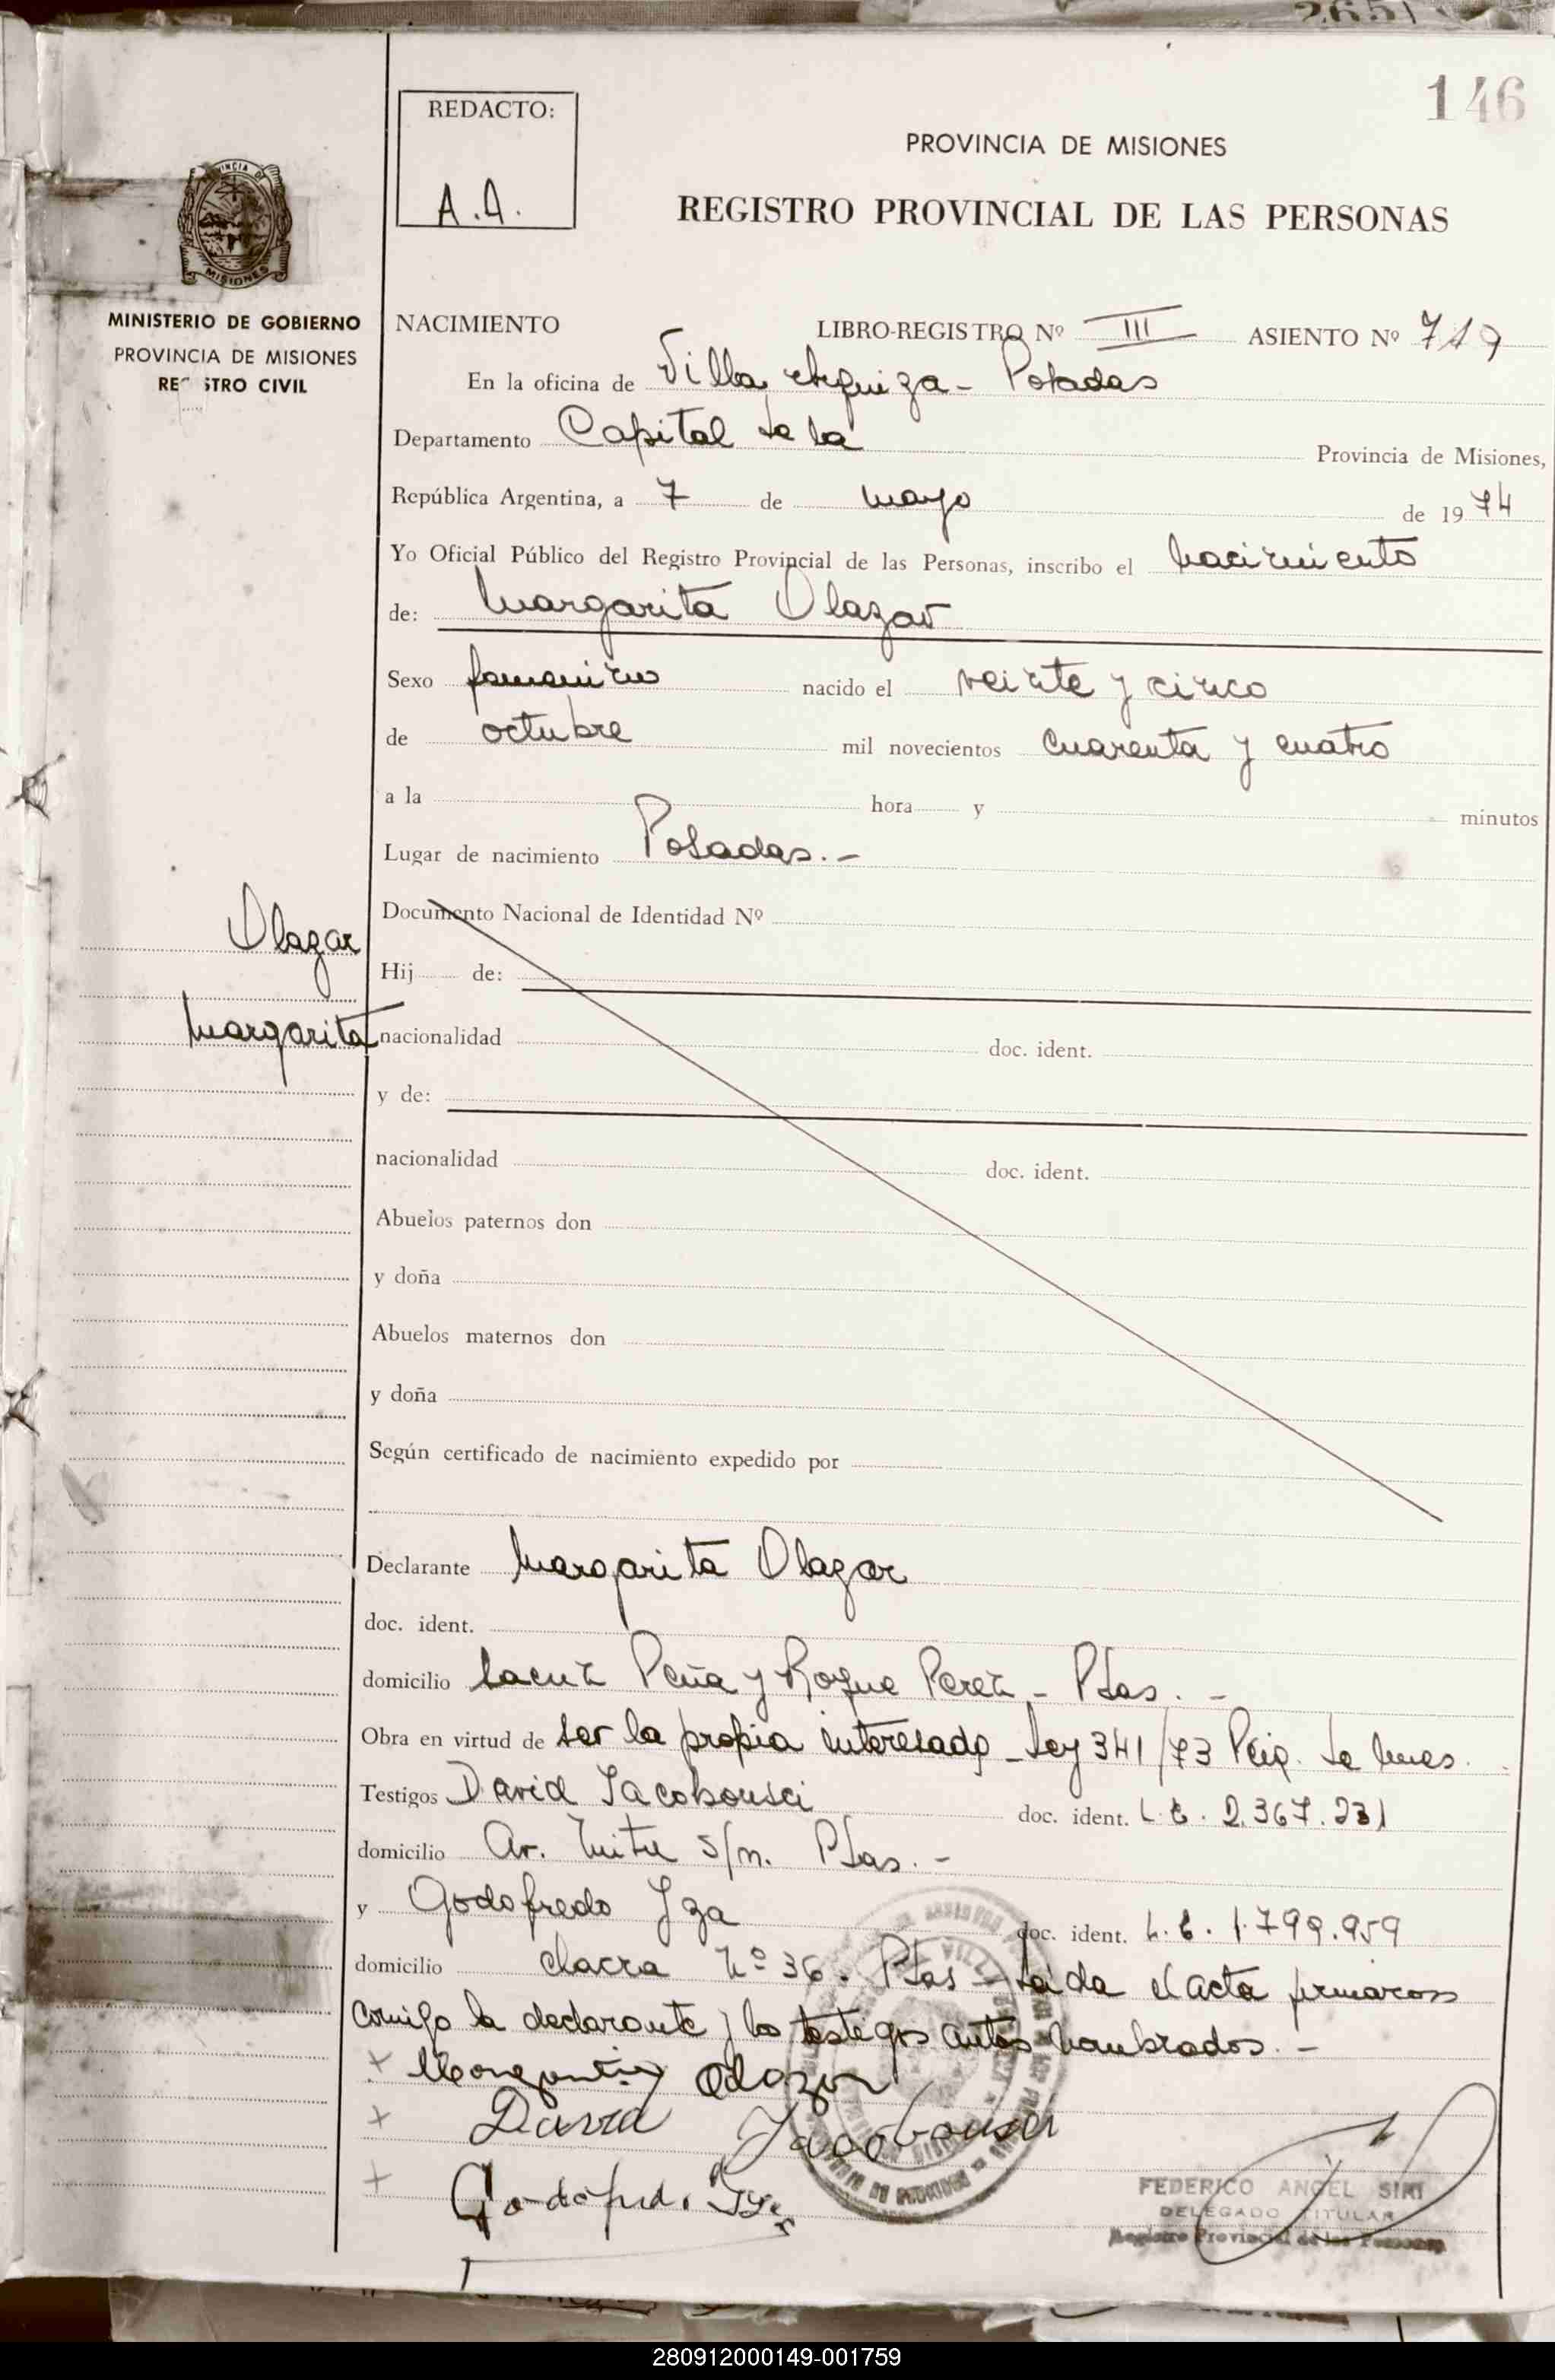 2651
146
REDACTO:
A.A.
PROVINCIA DE MISIONES
REGISTRO PROVINCIAL DE LAS PERSONAS
PROVINCIA DE
MISIONES
MINISTERIO DE GOBIERNO
PROVINCIA DE MISIONES
REGISTRO CIVIL
NACIMIENTO LIBRO-REGISTRO Nº III ASIENTO Nº 719
En la oficina de Villa Urquiza - Posadas
Departamento Capital de la Provincia de Misiones,
República Argentina, a 7 de mayo de 1974
Yo Oficial Público del Registro Provincial de las Personas, inscribo el nacimiento
de: Margarita Olazar
Sexo femenino nacido el veinte y cinco
de octubre mil novecientos cuarenta y cuatro
a la hora y minutos
Lugar de nacimiento Posadas.-
Documento Nacional de Identidad Nº
Olazar
Hij de:
Margarita
nacionalidad doc. ident.
y de:
nacionalidad doc. ident.
Abuelos paternos don
y doña
Abuelos maternos don
y doña
Según certificado de nacimiento expedido por
Declarante Margarita Olazar
doc. ident.
domicilio Saenz Peña y Roque Perez - Pdas.-
Obra en virtud de ser la propia interesada - Ley 341/73
Testigos David doc. ident. L.E. 2.367.231
domicilio Av. Mitre s/n. Pdas.-
y Godofredo doc. ident. L.E. 1.799.959
domicilio chacra Nº 36. Pdas - Leída el acta firmaron
conmigo la declarante y los testigos antes nombrados.-
x Margarita Olazar
x David
x
FEDERICO ANGEL SIRI
DELEGADO TITULAR
Registro Provincial de las Personas
280912000149-001759